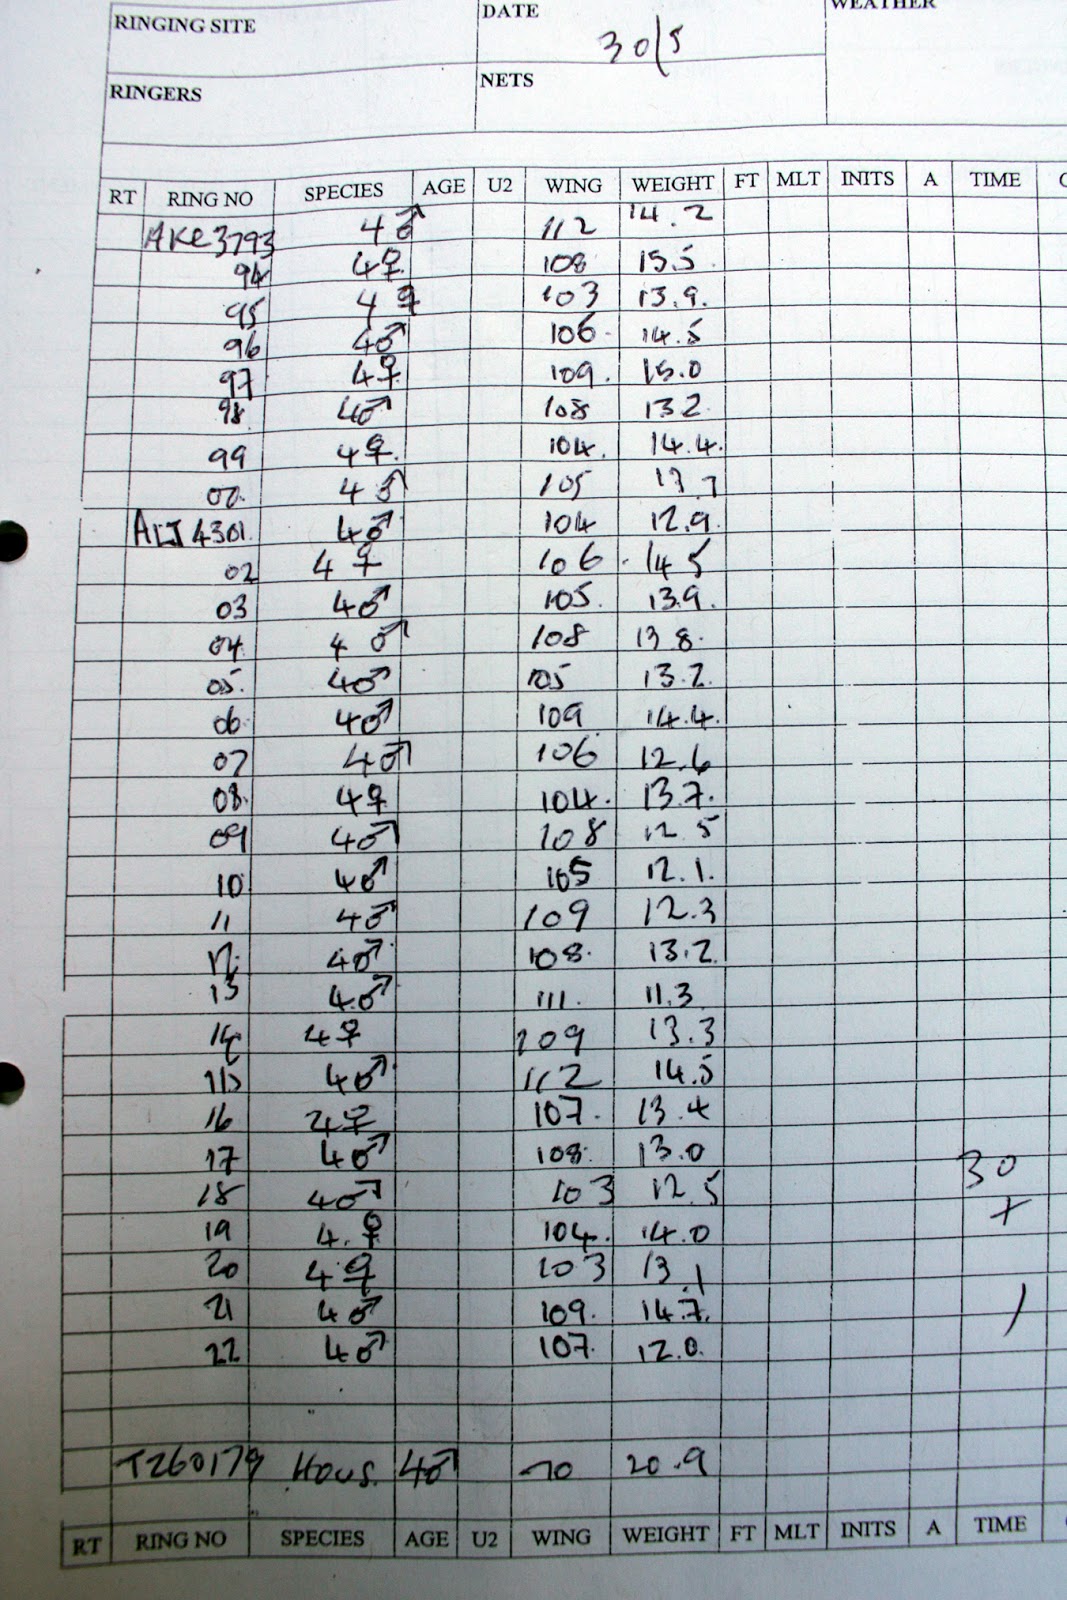 RINGING SITE DATE 30/5 WEATHER
RINGERS NETS
RT RING NO SPECIES AGE U2 WING WEIGHT FT MLT INITS A TIME
3793 4♂ 112 14.2
94 4♀ 108 15.5
95 4♀ 103 13.9.
96 4♂ 106. 14.5
97 4♀ 109. 15.0
98 4♂ 108 13.2
99 4♀. 104. 14.4.
00. 4♂ 105
4301. 4♂ 104 12.9.
02 4♀ 106 14.5
03 4♂ 105. 13.9.
04. 4♂ 108 13.8.
05. 4♂ 105 13.2.
06. 4♂ 109 14.4.
07 4♂ 106 12.6
08. 4♀ 104. 13.7.
09 4♂ 108 12.5
10 4♂ 105 12.1.
11 4♂ 109 12.3
12. 4♂ 108. 13.2
13 4♂ 111. 11.3
14 4♀ 109 13.3
15 4♂ 112 14.5
16 4♀ 107. 13.4
17 4♂ 108. 13.0
30
18 4♂ 103 12.5
+
19 4.♀ 104. 14.0
20 4♀ 103 13.1
21 4♂ 109. 14.7.
22 4♂ 107. 12.0.
T260179 Hous. 4♂ 70 20.9
RT RING NO SPECIES AGE U2 WING WEIGHT FT MLT INITS A TIME